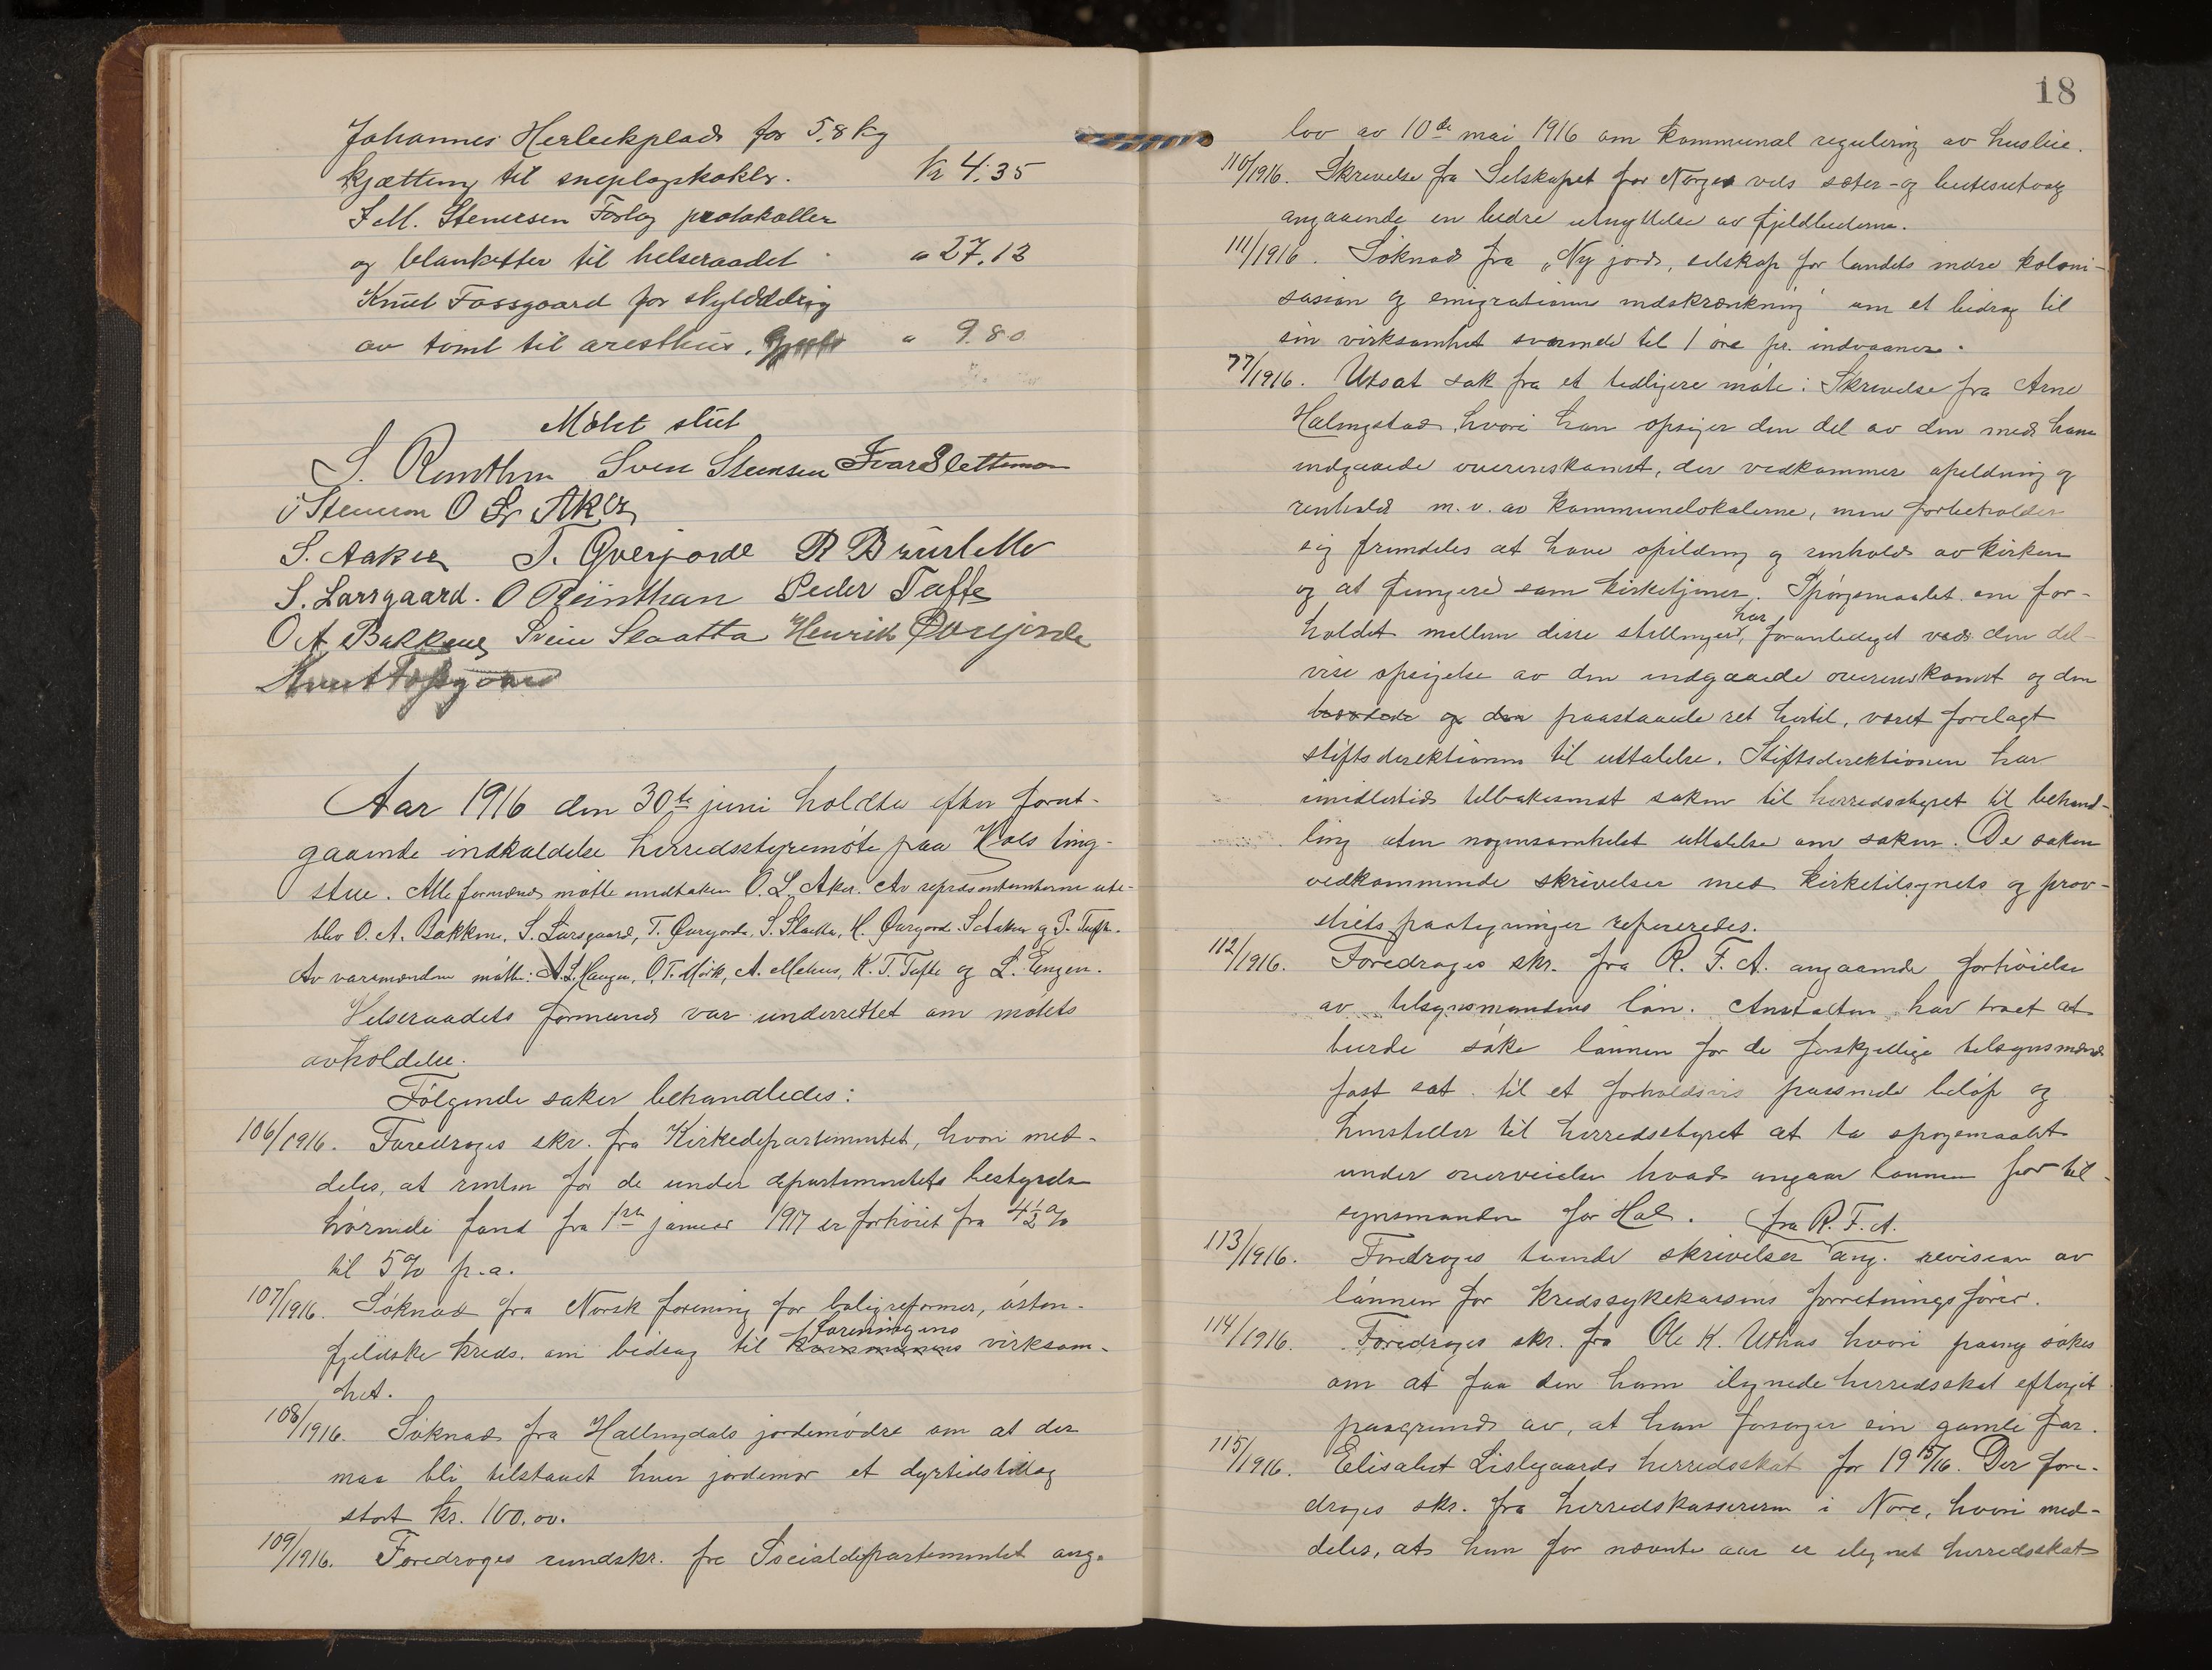 Johannes Herleikplads for 5.8 kg
kjætting til sneplogskokler. Kr 4.35
J. M. Stenersen Forlag protokoller
og blanketter til helseraadet " 27.12
Knut Fossgaard for skylddeling
av tomt til aresthus. " 9.80
Møtet slut
S. Renthun Svein Stensen Ivar Slettemoen
Stensen O L Aker
S. Aaker T. Qverjorde R Brustelle
S. Larsgaard. O Reinthun Peder Tufte
O A Bakkene Svein Slaatta Henrik Qverjorde
Knut Fossgaard
Aar 1916 den 30te juni holdtes efter forut-
gaaende indkaldelse herredsstyremøte paa Hols ting-
stue. Alle formænd møtte undtaken O. L. Aker. Av repræsentanterne ute-
blev O. A. Bakken, S. Larsgaard, T. Qverjorde, S. Slaatta, H. Qverjorde. S Aaker og P. Tufte.
Av varamændene møtte: A. L. Haugen, O. T. Moik, A. Mehus, K. T. Tufte og L. Engen.
Helseraadets formand var underrettet om møtets
avholdelse.
Følgende saker behandledes:
106/1916. Foredroges skr. fra Kirkedepartementet, hvori med-
deles, at renten for de under departementets bestyrelse
hørende fond fra 1ste januar 1917 er forhøiet fra 4½%
til 5% p.a.
107/1916. Søknad fra Norsk forening for boligreformer, østen-
fjeldske kreds. om bidrag til kommunens foreningens virksom-
het.
108/1916. Søknad fra Hallingdals jordemødre om at der
maa bli tilstaaet hver jordemor et dyrtidstillæg
stort kr. 100.00.
109/1916. Foredroges rundskr. fra Socialdepartementet ang.
18
lov av 10de mai 1916 om kommunal regulering av husleie.
110/1916. Skrivelse fra Selskapet for Norges vels sæter- og beiteutvalg
angaaende en bedre utnyttelse av fjeldbeiterne.
111/1916. Søknad fra "Ny jord, selskap for landets indre koloni-
sasion og emigrationens indskrænkning" om et bidrag til
sin virksomhet svarende til 1 øre pr. indvaaner.
77/1916. Utsat sak fra et tidligere møte: Skrivelse fra Arne
Halingstad hvori han opsiger den del av den med ham
indgaaede overenskomst, der vedkommer opeldning og
renhold m.v. av kommunelokalerne, men forbeholder
sig fremdeles at have opildning og renhold av kirken
og at fungere som kirketjener. Spørgsmaalet om for-
holdet mellem disse stillinger, har foranlediget ved den del-
vise opsigelse av den indgaaede overenskomst og den
og den paastaaede ret hertil, været forelagt
stiftsdirektionen til uttalelse. Stiftsdirektionen har
imidlertid tilbakesendt saken til herredsstyret til behand-
ling uten nogensomhelst uttalelse om saken. De saken
vedkommende skrivelser med kirketilsynets og prov-
stiets paategninger refereredes.
112/1916. Foredroges skr. fra R. F. A. angaaende forhøielse
av tilsynsmandens løn. Anstalten har troet at
burde søke lønnen for de forskjellige tilsynsmænd
fast sat til et forholdsvis passende beløp og
henstiller til herredsstyret at ta spørgsmaalet
under overveielse hvad angaar lønnen for til-
synsmanden for Hol. fra R. F. A.
113/1916. Foredroges tvende skrivelser ang. revision av
lønnen for kredssykekassens forretningsfører.
114/1916. Foredroges skr. fra Ole K. Uthus hvori paany søkes
om at faa den ham ilignede herredsskat eftergit
paagrund av, at han forsørger sin gamle far.
115/1916. Elisabet Lislegaards herredsskat for 1915/16. Der fore-
droges skr. fra herredskassereren i Nore, hvori med-
deles, at hun for nævnte aar er ilignet herredsskat